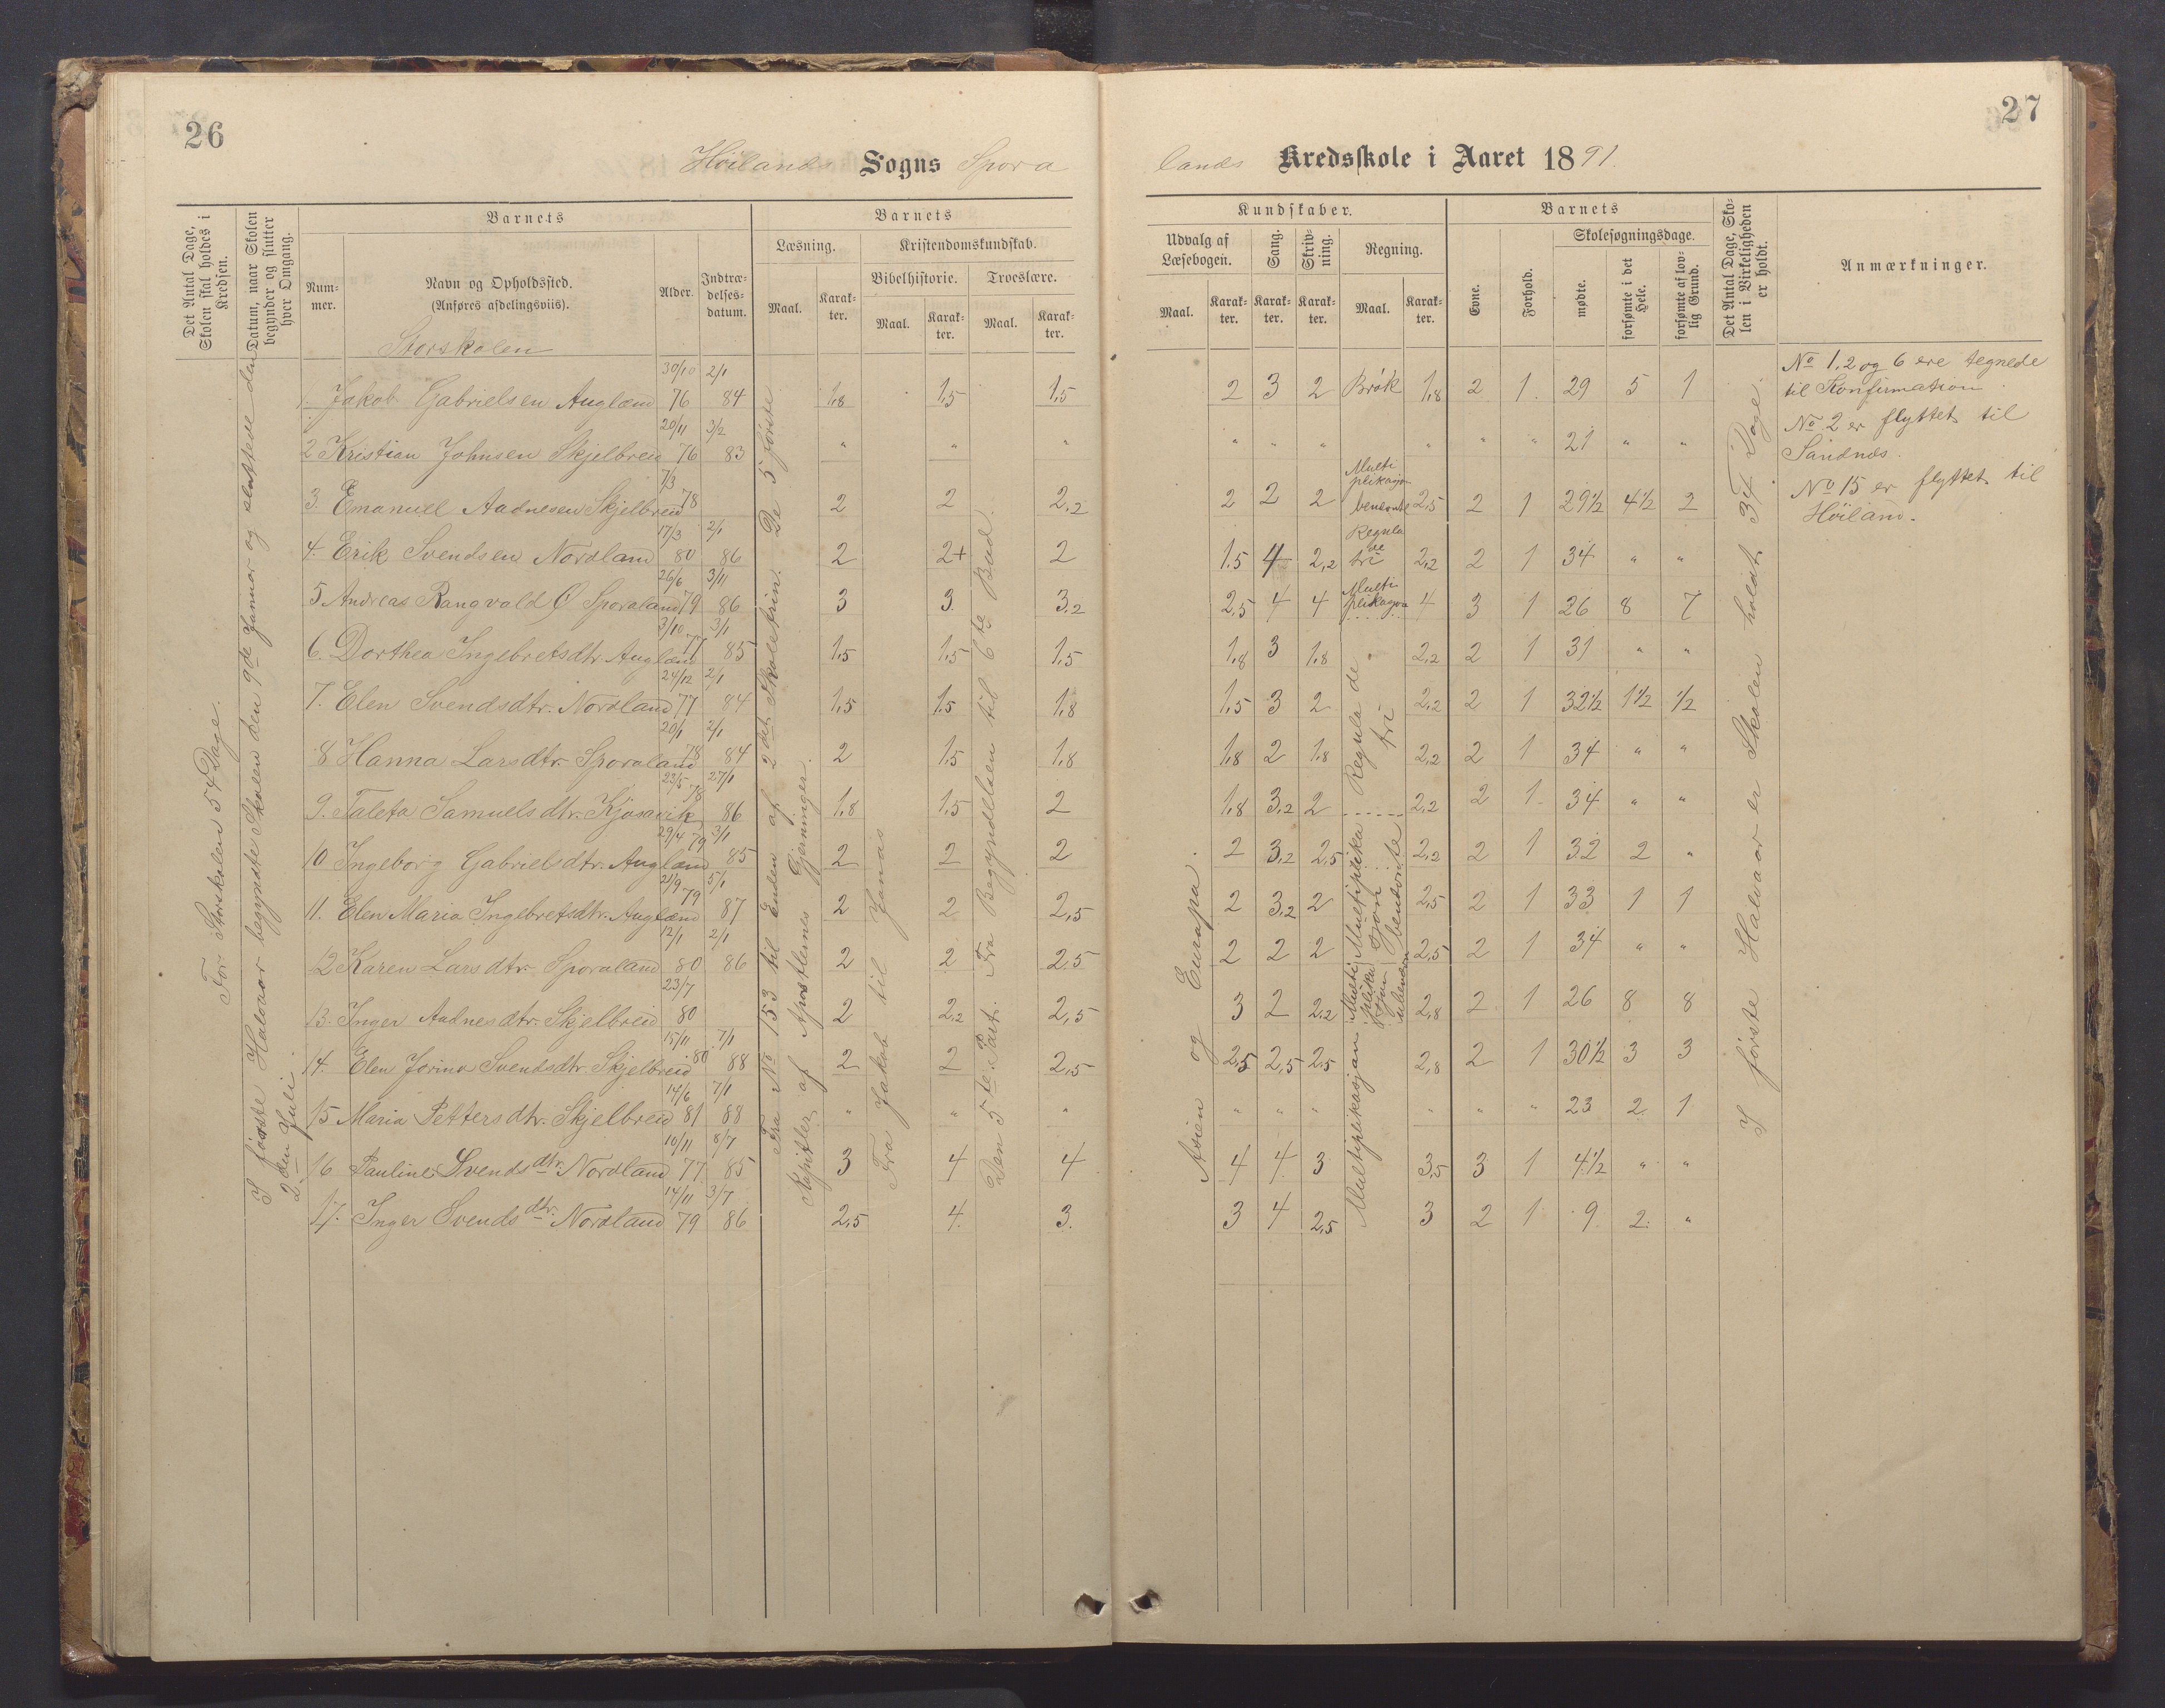 26
Höilands Sogns Spora
Det Antal Dage, Skolen skal holdes i Kredsen.
Datum, naar Skolen begynder og slutter hver Omgang.
Barnets
Num-mer.
Navn og Opholdssted. (Anføres afdelingsviis).
Alder.
Indtræ-delses-datum.
Barnets
Læsning.
Maal.
Karak-ter.
Kristendomskundskab.
Bibelhistorie.
Maal.
Karak-ter.
Troeslære.
Maal.
Karak-ter.
For Storskolen 54 Dage.
I første Halvaar begyndte Skolen den 9de Januar og sluttede den
2den Juli.
Storskolen
1. Jakob Gabrielsen Auglænd 30/10 76 2/1 84 1,8 1,5 1,5
2 Kristian Johnsen Skjelbreid 20/11 76 3/2 83 " " "
3. Emanuel Aadnesen Skjelbreid 7/3 78 2 2 2,2
4. Erik Svendsen Nordland 17/3 80 2/1 86 2 2+ 2
5 Andreas Rangvald O Sporaland 26/6 79 3/11 86 3 3. 3,2
6. Dorthea Ingebretsdtr. Auglænd 3/10 77 3/1 85 1,5 1,5 1,5
7. Elen Svendsdtr. Nordland 24/12 77 2/1 84 1,5 1,5 1,8
8 Hanna Larsdtr. Sporaland 20/1 78 2/1 84 2 1,5 1,8
9. Taleta Samuelsdtr. Kjosavik 23/5 78 27/1 86 1,8 1,5 2
10 Ingeborg Gabrielsdtr. Auglænd 29/4 79 3/1 85 2 2 2
11. Elen Maria Ingebretsdtr. Auglænd 21/9 79 5/1 87 2 2 2,5
12 Karen Larsdtr. Sporaland 12/1 80 2/1 86 2 2 2,5
13. Inger Aadnesdtr. Skjelbreid 23/7 80 2 2,2 2,5
14. Elen Jorina Svendsdtr. Skjelbreid 15/11 80 7/1 88 2 2 2,5
15 Maria Pettersdtr. Skjelbreid 14/6 81 7/1 88 " " "
16 Pauline Svendsdtr. Nordland 10/11 77 8/7 85 3 4 4
17. Inger Svendsdtr. Nordland 14/11 79 3/7 86 2,5 4 3.
Fra No 153 til Enden af 2det Skoletrin. De 5 første
Kapitler af Apostlernes Gjerninger.
Fra Jakob til Jonas
Den 5te Part. Fra Begyndelsen til 6te Bud.
27
lands Kredsskole i Aaret 1891.
Kundskaber.
Udvalg af Læsebogen.
Maal.
Karak-ter.
Sang.
Karak-ter.
Skriv-ning.
Karak-ter.
Regning.
Maal.
Karak-ter.
Barnets
Evne.
Forhold.
Skolesøgningsdage.
mødte.
forsømte i det Hele.
forsømte af lov-lig Grund.
Det Antal Dage, Sko-len i Virkeligheden er holdt.
Anmærkninger.
2 3 2 Brök 1,8 2 1. 29 5 1
" " " " " " 21 " "
2 2 2 Multiplikasjon benevnte 2,5 2 1 29½ 4½ 2
1,5 4 2,2 Regula de tri 2,2 2 1 34 " "
2,5 4 4 Multi 4 3 1 26 8 7
1,8 3 1,8 2,2 2 1 31 " "
1,5 3 2 2,2 2 1 32½ 1½ ½
1,8 2 1,8 2,2 2 1 34 " "
1,8 3,2 2 2,2 2 1. 34 " "
2 3,2 2,5 2,2 2 1 32 2 "
2 3,2 2 2,5 2 1 33 1 1
2 2 2 2,5 2 1 34 " "
3 2 2,2 2,8 2 1 26 8 8
2,5 2,5 2,5 2,8 2 1 30½ 3 3
" " " " " " 23 2 1
4 4 3 3,5 3 1 4½ " "
3 4 2,5 3 2 1 9 2 "
Asien og Europa.
Regula de tri
Multiplikasjon
I første Halvaar er Skolen holdt 34 Dage.
No 1, 2 og 6 ere tegnede
til Konfirmation.
No 2 er flyttet til
Sandnæs.
No 15 er flyttet til
Höiland.